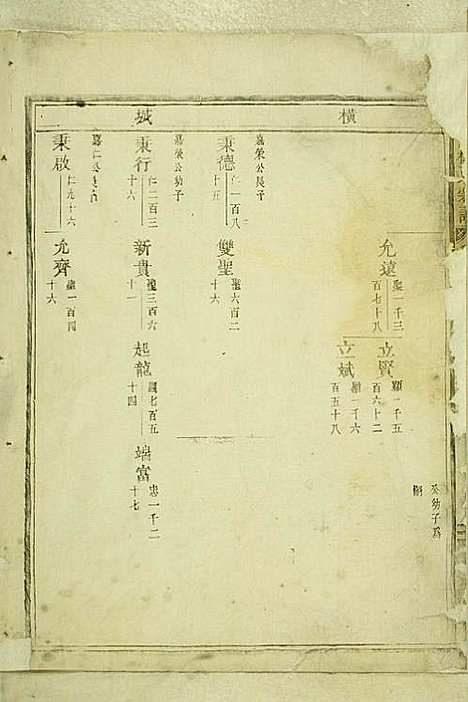 橫城
公幼子為
嗣
允遠 聖一千三百七十八
立賢 顯一千五百六十二
立斌 顯一千六百五十八
嘉榮公長子
秉德 仁一百八十五
雙聖 聖六百二十六
嘉榮公幼子
秉行 仁二百三十六
新貴 聖三百六十一
起龍 顯七百五十四
端富 忠一千二十七
秉啟 仁九十六
允齊 聖一百四十六